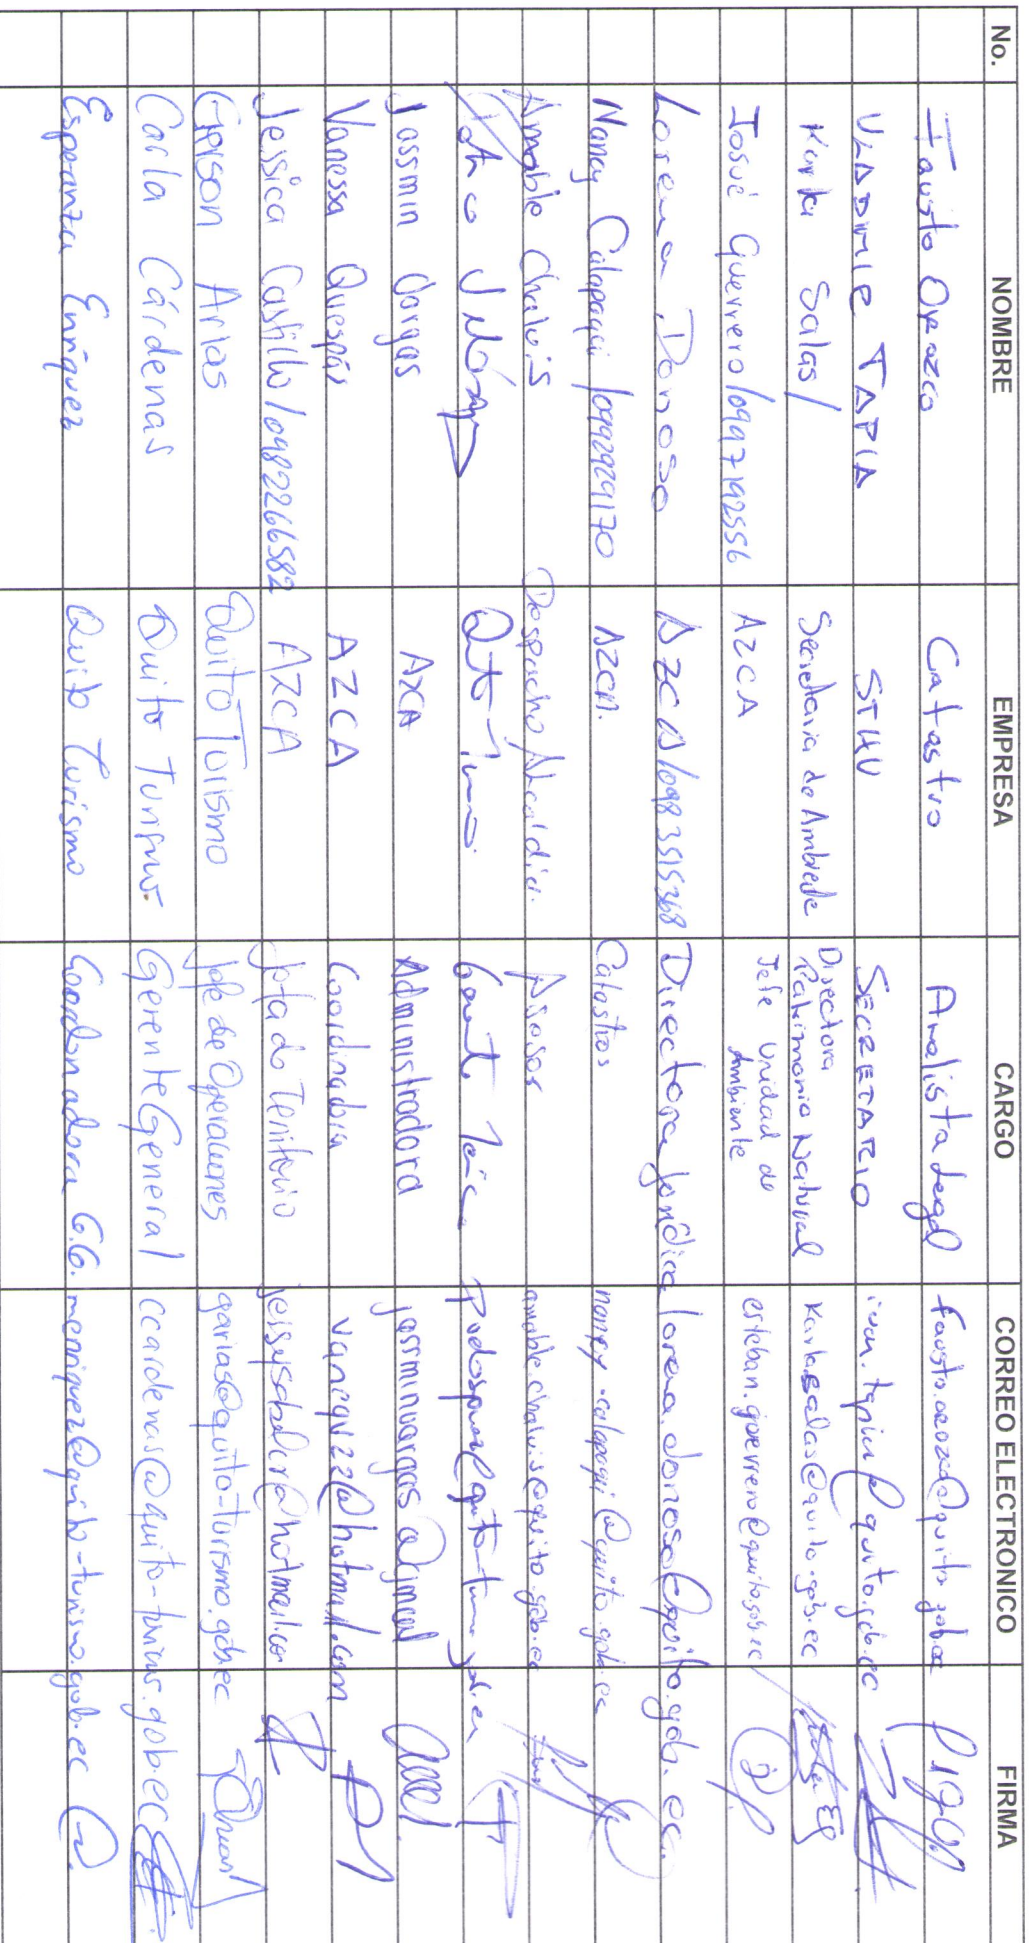 No. NOMBRE EMPRESA CARGO CORREO ELECTRONICO FIRMA
Fausto Orozco Catastro Analista Legal fausto.orozco@quito.gob.ec
VLADIMIR TAPIA STHV SECRETARIO ivan.tapia@quito.gob.ec
Karla Salas / Secretaria de Ambiente Directora Patrimonio Natural karla.salas@quito.gob.ec
Josué Guerrero / 0997192556 AZCA Jefe Unidad de Ambiente esteban.guerrero@quito.gob.ec
Lorena Donoso AZCA / 0983515368 Directora Jurídica lorena.donoso@quito.gob.ec
Nancy Calapaqui / 0992929170 AZCA. Catastros nancy.calapaqui@quito.gob.ec
Amable Chaluis Despacho Alcaldía. Asesor amable.chaluis@quito.gob.ec
Quito Turismo
Jassmin Vargas AZCA Administradora jassminvargas@gmail
Vanessa Quespás AZCA Coordinadora vanequ22@hotmail.com
Jessica Castillo / 0982266582 AZCA Jefa de Territorio
Geison Arias Quito Turismo Jefe de Operaciones garias@quito-turismo.gob.ec
Carla Cárdenas Quito Turismo. Gerente General ccardenas@quito-turismo.gob.ec
Esperanza Enríquez Quito Turismo Coordinadora G.G. menriquez@quito-turismo.gob.ec